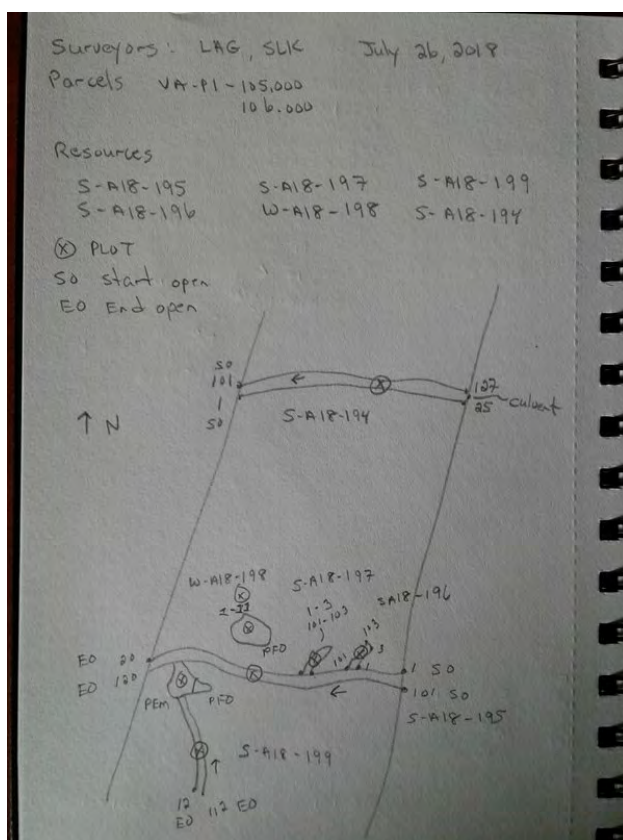 Surveyors: LAG, SLK July 26, 2018
Parcels VA-PI-105.000
106.000
Resources
S-A18-195 S-A18-197 S-A18-199
S-A18-196 W-A18-198 S-A18-194
X PLOT
SO Start open
EO End open
SO
101
1
SO
127
25 culvert
↑ N
S-A18-194
W-A18-198
1-11
PFO
S-A18-197
1-3
101-103
SA18-196
103
3
101
1
EO 20
EO 120
1 SO
101 SO
S-A18-195
PEM
PFO
S-A18-199
12
EO
112 EO